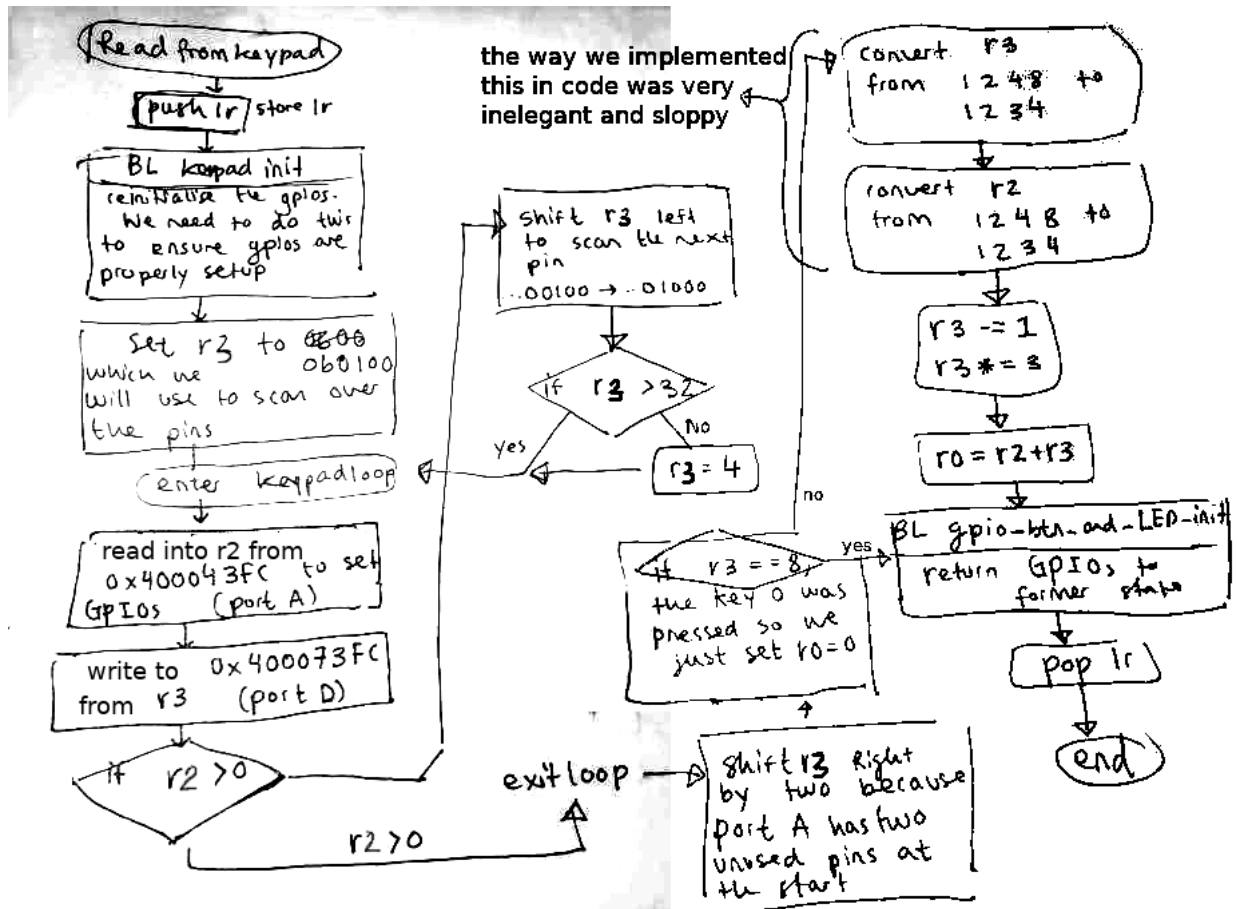 Read from keypad
push lr store lr
BL keypad init
reinitialise the gpios.
We need to do this
to ensure gpios are
properly setup
set r3 to
which we 0b0100
will use to scan over
the pins
enter keypadloop
read into r2 from
0x400043FC to set
GpIOs (port A)
write to 0x400073FC
from r3 (port D)
if r2 >0
r2 >0
shift r3 left
to scan the next
pin
..00100 → ..01000
if r3 >32
yes
No
r3 = 4
exit loop
shift r3 Right
by two because
port A has two
unused pins at
the start
if r3 == 8,
the key 0 was
pressed so we
just set r0=0
yes
no
the way we implemented
this in code was very
inelegant and sloppy
convert r3
from 1 2 4 8 to
1 2 3 4
convert r2
from 1 2 4 8 to
1 2 3 4
r3 -= 1
r3 *= 3
r0 = r2+r3
BL gpio_btn_and_LED_init
return GPIOs to
former state
pop lr
end